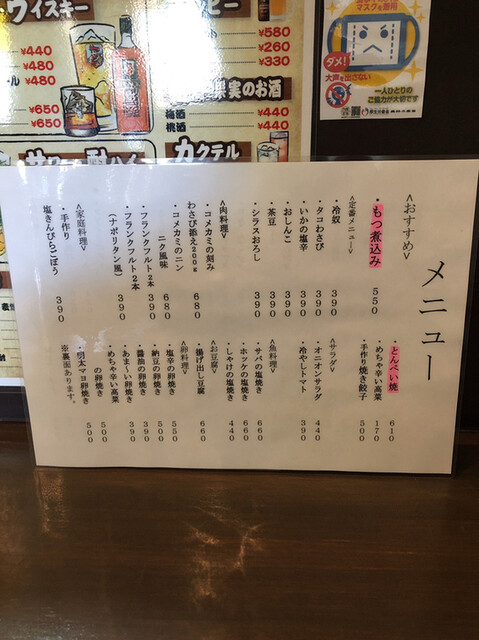 ウイスキー
¥440
¥480
¥480
¥650
¥650
ビー
¥580
¥260
¥330
果実のお酒
梅酒 ¥440
桃酒 ¥440
カクテル
マスクを着用
ダメ！
大声を出さない
一人ひとりの
ご協力が大切です
メニュー
<おすすめ>
・もつ煮込み 550
<定番メニュー>
・冷奴 390
・タコわさび 390
・いかの塩辛 390
・おしんこ 390
・茶豆 390
・シラスおろし 390
<肉料理>
・コメカミの刻み
わさび添え200g 680
・コメカミのニン
ニク風味 680
・フランクフルト2本 390
・フランクフルト2本
(ナポリタン風) 390
<家庭料理>
・手作り
塩きんぴらごぼう 390
・とんぺい焼 610
・めちゃ辛い高菜 170
・手作り焼き餃子 500
<サラダ>
・オニオンサラダ 440
・冷やしトマト 390
<魚料理>
・サバの塩焼き 660
・ホッケの塩焼き 660
・しゃけの塩焼き 440
<お豆腐>
・揚げ出し豆腐 660
<卵料理>
・塩辛の卵焼き 550
・納豆の卵焼き 500
・醤油の卵焼き 390
・あま〜い卵焼き 390
・めちゃ辛い高菜
の卵焼き 500
・明太マヨ卵焼き 500
※裏面あります。